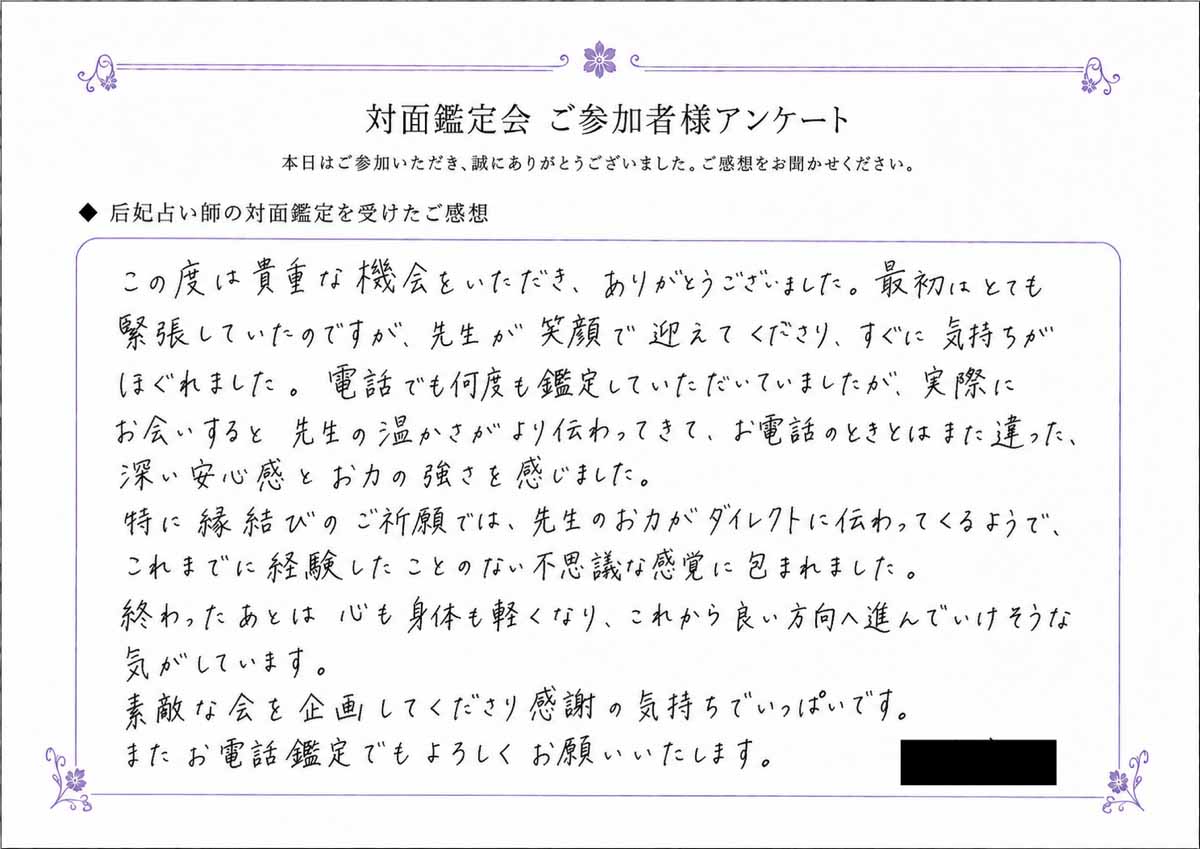 対面鑑定会 ご参加者様アンケート
本日はご参加いただき、誠にありがとうございました。ご感想をお聞かせください。
◆ 后妃占い師の対面鑑定を受けたご感想
この度は貴重な機会をいただき、ありがとうございました。最初はとても
緊張していたのですが、先生が笑顔で迎えてくださり、すぐに気持ちが
ほぐれました。電話でも何度も鑑定していただいていましたが、実際に
お会いすると 先生の温かさがより伝わってきて、お電話のときとはまた違った、
深い安心感とお力の強さを感じました。
特に縁結びのご祈願では、先生のお力がダイレクトに伝わってくるようで、
これまでに経験したことのない不思議な感覚に包まれました。
終わったあとは 心も身体も軽くなり、これから良い方向へ進んでいけそうな
気がしています。
素敵な会を企画してくださり感謝の気持ちでいっぱいです。
またお電話鑑定でもよろしくお願いいたします。